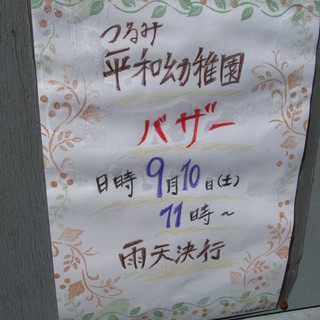 つるみ
平和幼稚園
バザー
日時 9月10日(土)
11時~
雨天決行